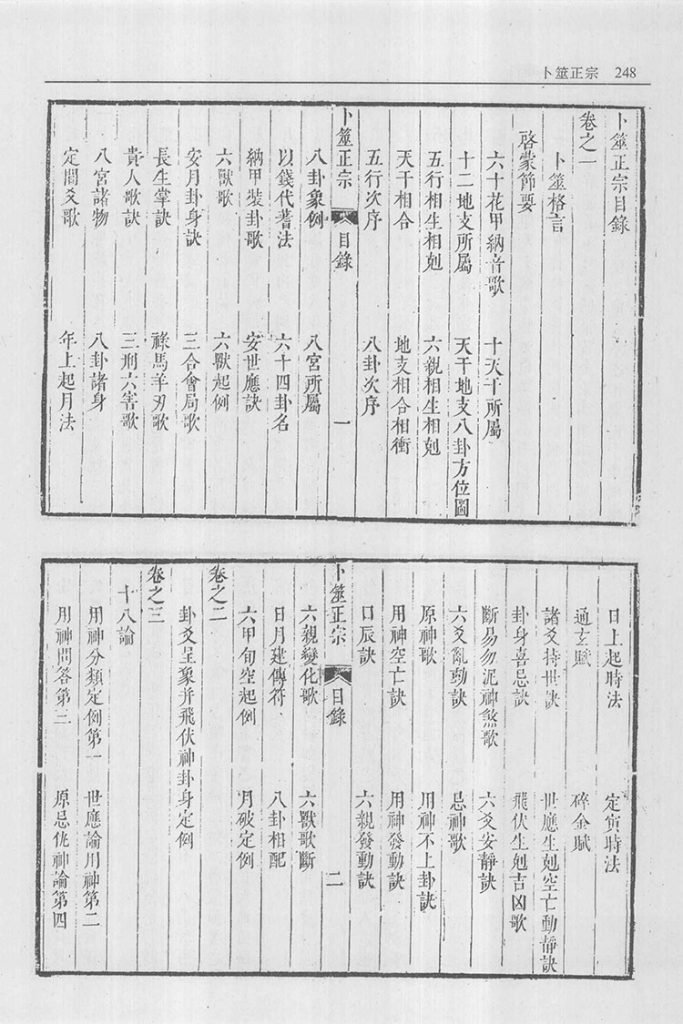 卜筮正宗 248
卜筮正宗目錄
卷之一
卜筮格言
啓蒙節要
六十花甲納音歌 十天干所屬
十二地支所屬 天干地支八卦方位圖
五行相生相剋 六親相生相剋
天干相合 地支相合相衝
五行次序 八卦次序
卜筮正宗 目錄 一
八卦象例 八宮所屬
以錢代蓍法 六十四卦名
納甲裝卦歌 安世應訣
六獸歌 六獸起例
安月卦身訣 三合會局歌
長生掌訣 祿馬羊刃歌
貴人歌訣 三刑六害歌
八宮諸物 八卦諸身
定間爻歌 年上起月法
日上起時法 定寅時法
通玄賦 碎金賦
諸爻持世訣 世應生剋空亡動靜訣
卦身喜忌訣 飛伏生剋吉凶歌
斷易勿泥神煞歌 六爻安靜訣
六爻亂動訣 忌神歌
原神歌 用神不上卦訣
用神空亡訣 用神發動訣
日辰訣 六親發動訣
卜筮正宗 目錄 二
六親變化歌 六獸歌斷
日月建傳符 八卦相配
六甲旬空起例 月破定例
卷之二
卦爻呈象并飛伏神卦身定例
卷之三
十八論
用神分類定例第一 世應論用神第二
用神問答第三 原忌仇神論第四